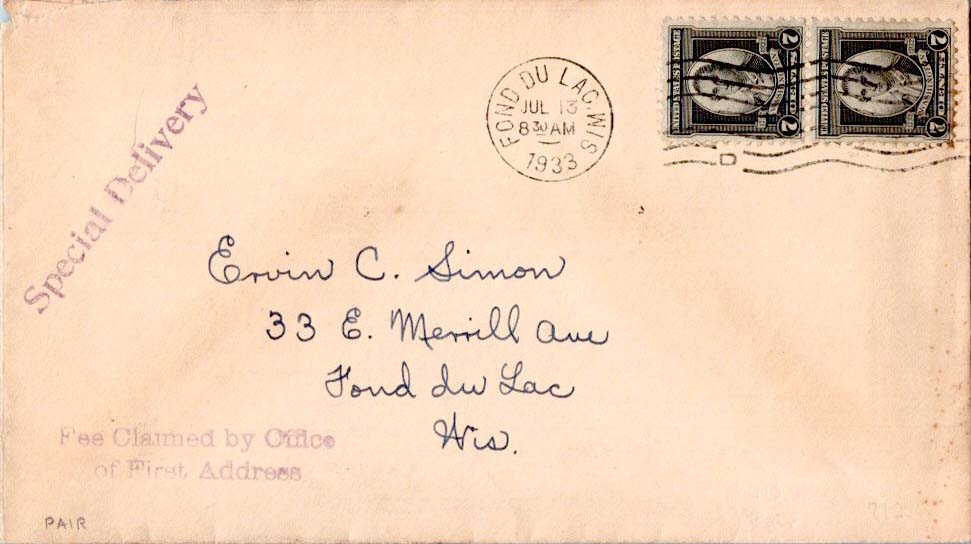 Special Delivery
FOND DU LAC, WIS.
JUL 13
8 30 AM
1933
UNITED STATES POSTAGE
2 2
UNITED STATES POSTAGE
2 2
Ervin C. Simon
33 E. Merrill Ave
Fond du Lac
Wis.
Fee Claimed by Office
of First Address
PAIR